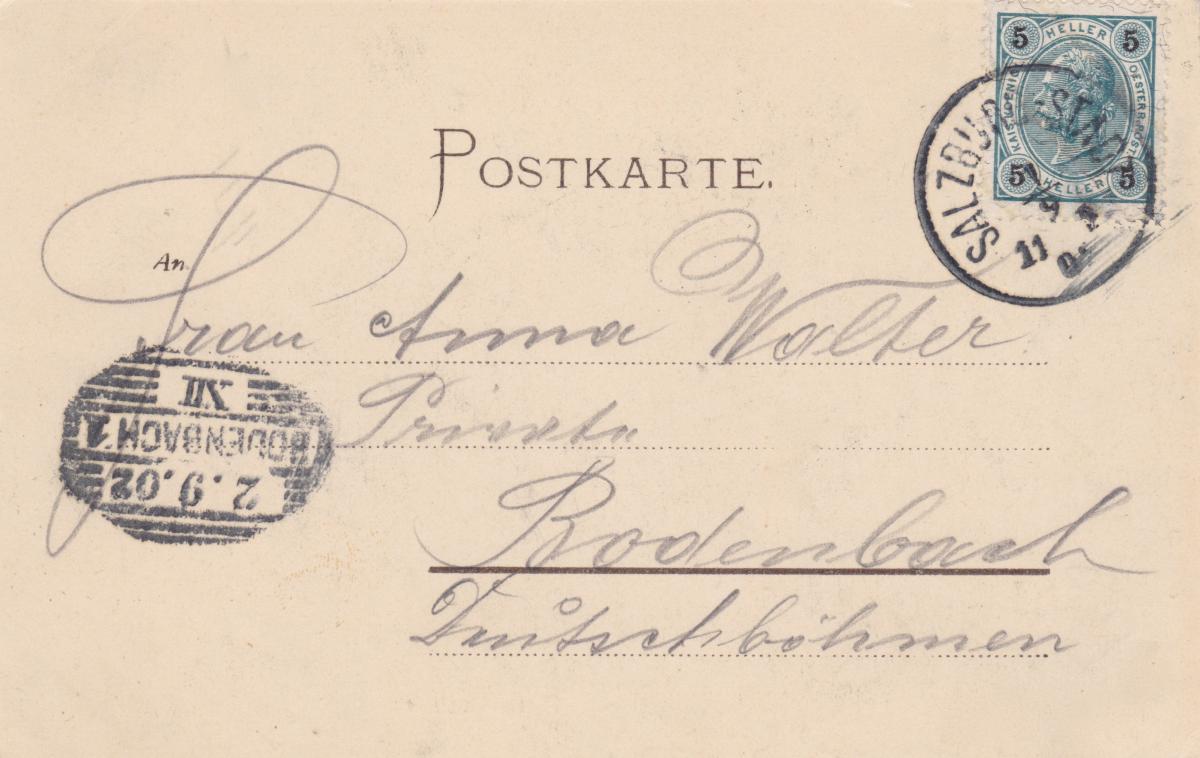 HELLER
5 5
KAIS. KOENIG. OESTERR. POST
5 5
HELLER
SALZBURG-STADT
11
POSTKARTE.
An
Frau Anna Walter
Private
Bodenbach
Deutschböhmen
XII
BODENBACH 1
2.9.02